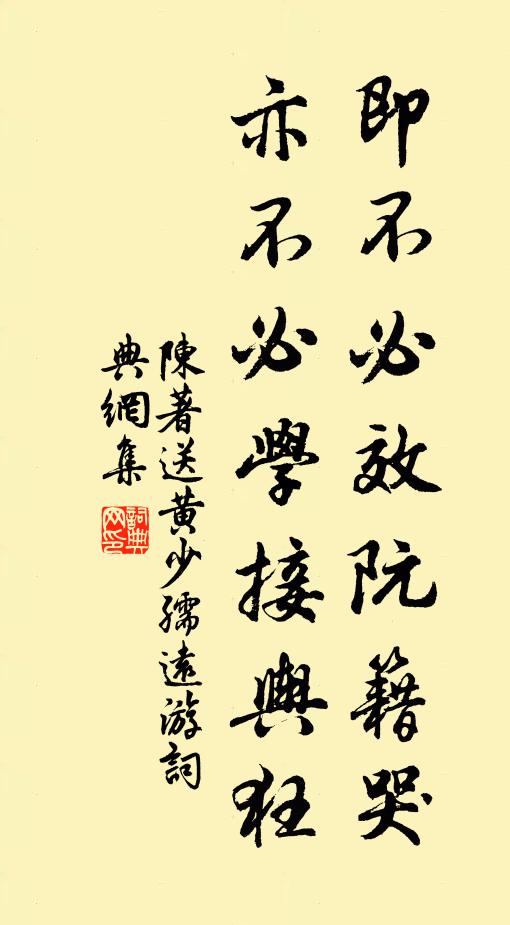 即不必效阮籍哭
亦不必學接輿狂
陳著送黃少孺遠游詞
典網集
詞典
网印